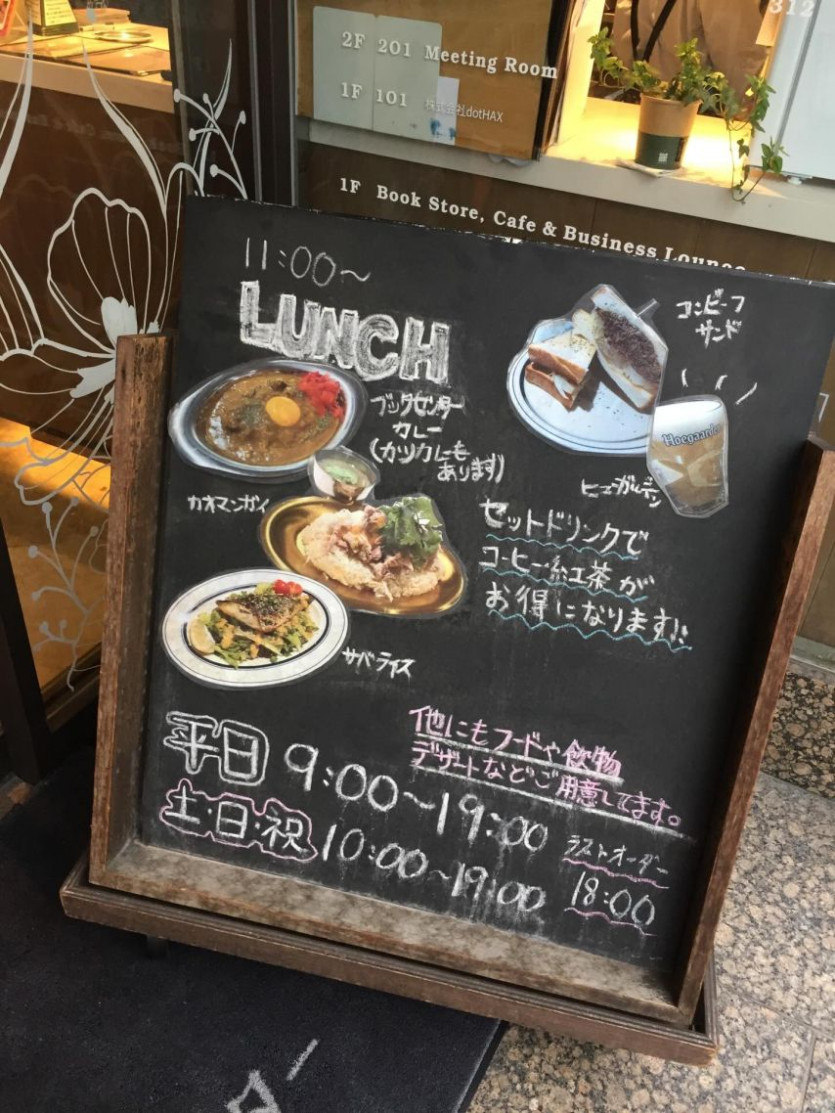 312
2F 201 Meeting Room
1F 101 株式会社dotHAX
1F Book Store, Cafe & Business Lounge
11:00〜
LUNCH
コンビーフ
サンド
ブックセンター
カレー
(カツカレーも
あります)
Hoegaarden
ヒューガルデン
カオマンガイ
セットドリンクで
コーヒー・紅茶が
お得になります!!
サバライス
他にもフードや飲物
デザートなどご用意してます。
平日 9:00〜19:00
土・日・祝 10:00〜19:00
ラストオーダー
18:00